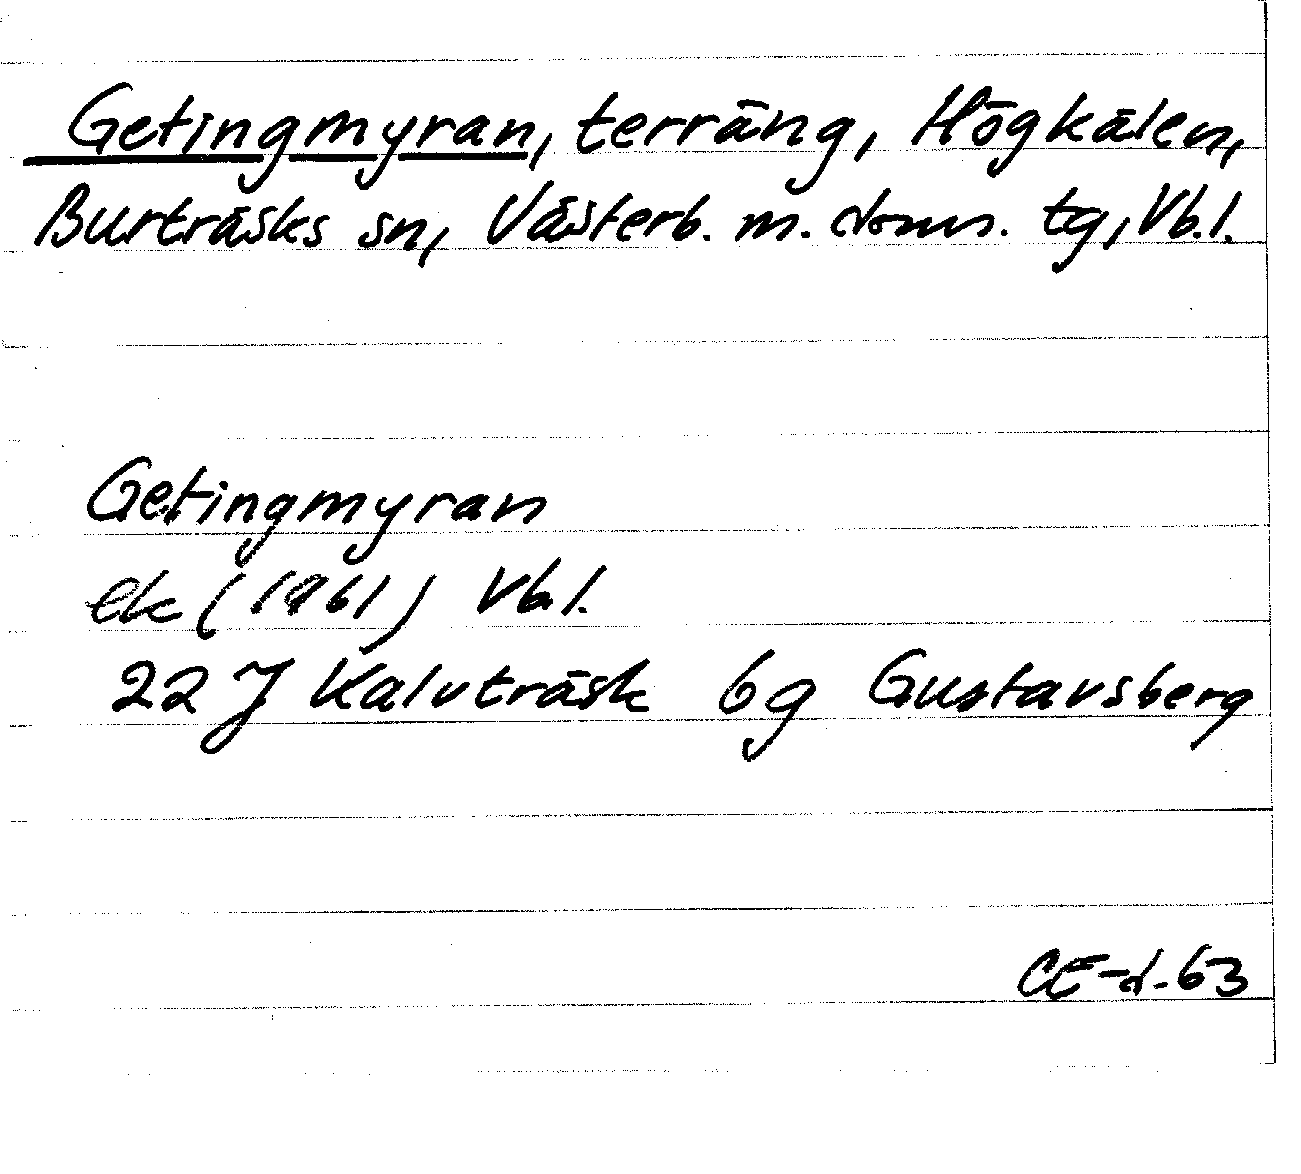 Getingmyran, terräng, Högkälen,
Burträsks sn, Västerb. m. doms. tg, Vb.l.
Getingmyran
ek (1961) Vb.l.
22 J Kalvträsk 6g Gustavsberg
CE-d. 63